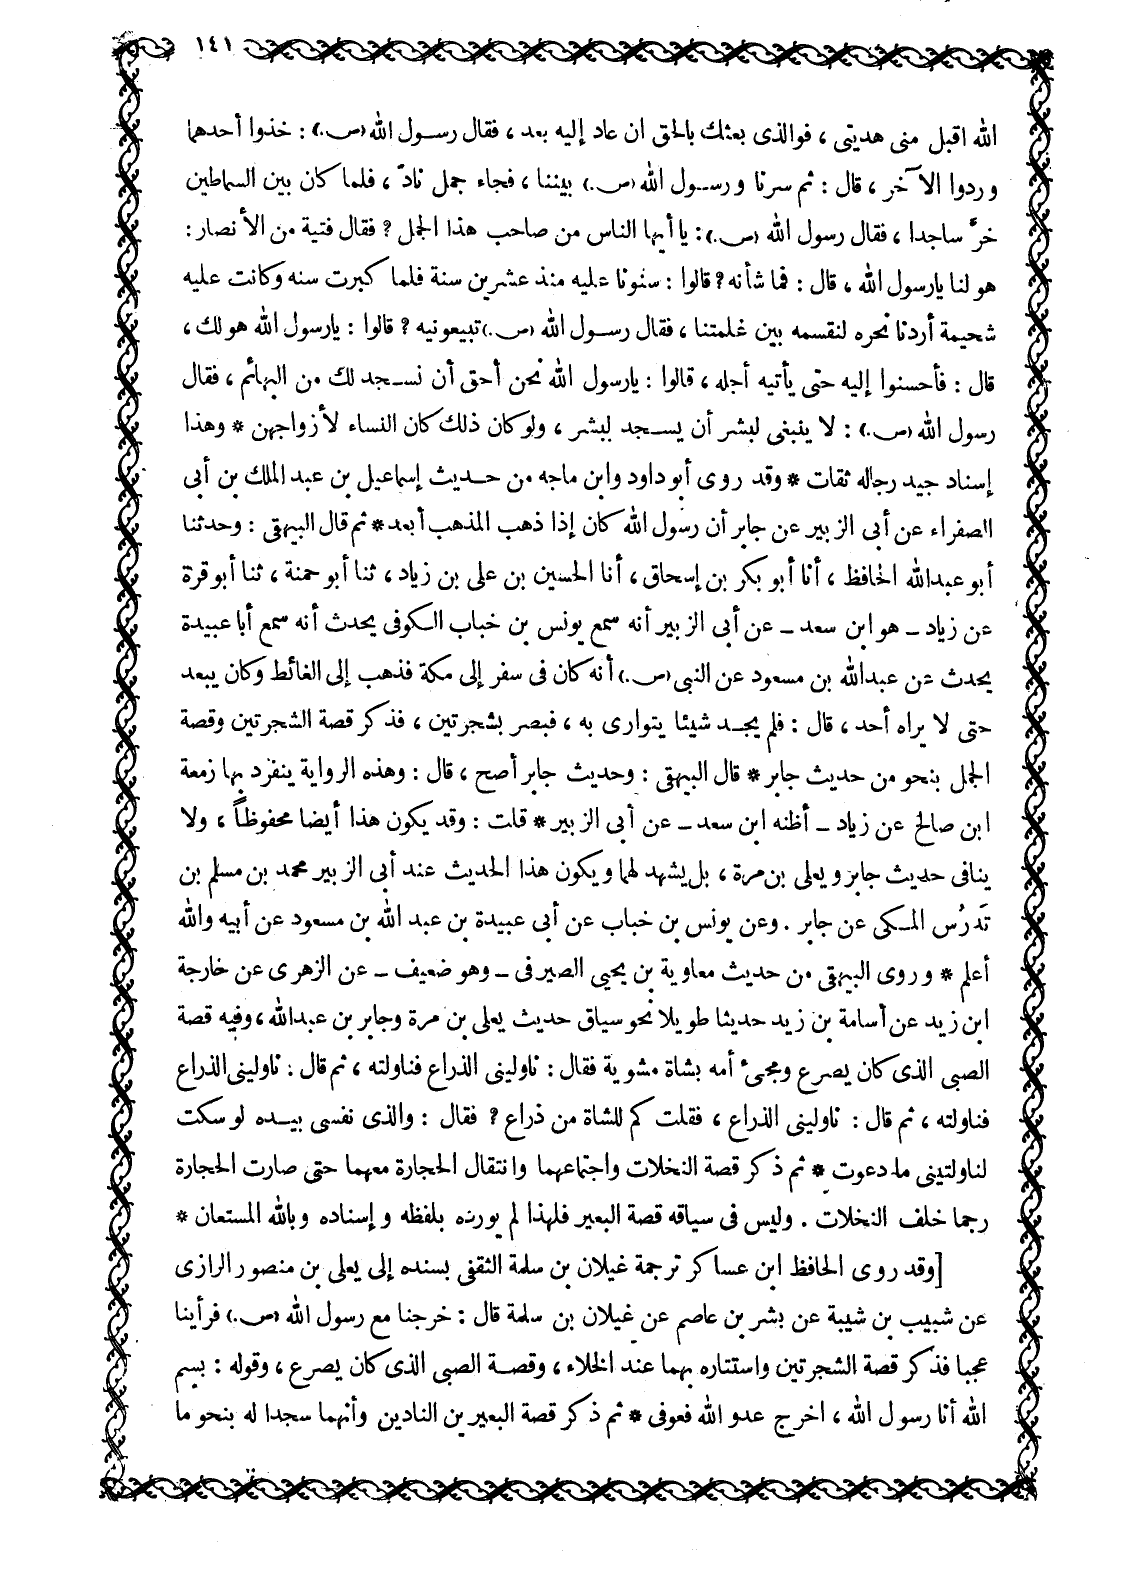 ١٤١
الله اقبل منى هديتى ، فوالذى بعثك بالحق ان عاد إليه بعد ، فقال رسول الله (ص.) : خذوا أحدهما
وردوا الآخر ، قال : ثم سرنا ورسول الله (ص.) بيننا ، فجاء جمل نادّ ، فلما كان بين السماطين
خرَّ ساجدا ، فقال رسول الله (ص.) : يا أيها الناس من صاحب هذا الجمل ؟ فقال فتية من الأنصار :
هو لنا يارسول الله ، قال : فما شأنه ؟ قالوا : سنونا عليه منذ عشرين سنة فلما كبرت سنه وكانت عليه
شحيمة أردنا نحره لنقسمه بين غلمتنا ، فقال رسول الله (ص.) تبيعونيه ؟ قالوا : يارسول الله هو لك ،
قال : فأحسنوا إليه حتى يأتيه أجله ، قالوا : يارسول الله نحن أحق أن نسجد لك من البهائم ، فقال
رسول الله (ص.) : لا ينبغى لبشر أن يسجد لبشر ، ولو كان ذلك كان النساء لأزواجهن * وهذا
إسناد جيد رجاله ثقات * وقد روى أبو داود وابن ماجه من حديث إسماعيل بن عبد الملك بن أبى
الصفراء عن أبى الزبير عن جابر أن رسول الله كان إذا ذهب المذهب أبعد * ثم قال البيهقى : وحدثنا
أبو عبدالله الحافظ ، أنا أبو بكر بن إسحاق ، أنا الحسين بن على بن زياد ، ثنا أبو حمنة ، ثنا أبو قرة
عن زياد ـ هو ابن سعد ـ عن أبى الزبير أنه سمع يونس بن خباب الكوفى يحدث أنه سمع أبا عبيدة
يحدث عن عبدالله بن مسعود عن النبى (ص.) أنه كان فى سفر إلى مكة فذهب إلى الغائط وكان يبعد
حتى لا يراه أحد ، قال : فلم يجد شيئا يتوارى به ، فبصر بشجرتين ، فذكر قصة الشجرتين وقصة
الجمل بنحو من حديث جابر * قال البيهقى : وحديث جابر أصح ، قال : وهذه الرواية ينفرد بها زمعة
ابن صالح عن زياد ـ أظنه ابن سعد ـ عن أبى الزبير * قلت : وقد يكون هذا أيضا محفوظاً ، ولا
ينافى حديث جابر ويعلى بن مرة ، بل يشهد لهما ويكون هذا الحديث عند أبى الزبير محمد بن مسلم بن
تَدرُس المكى عن جابر . وعن يونس بن خباب عن أبى عبيدة بن عبد الله بن مسعود عن أبيه والله
أعلم * وروى البيهقى من حديث معاوية بن يحيى الصيرفى ـ وهو ضعيف ـ عن الزهرى عن خارجة
ابن زيد عن أسامة بن زيد حديثا طويلا نحو سياق حديث يعلى بن مرة وجابر بن عبدالله ، وفيه قصة
الصبى الذى كان يصرع ومجىء أمه بشاة مشوية فقال : ناولينى الذراع فناولته ، ثم قال : ناولينى الذراع
فناولته ، ثم قال : ناولينى الذراع ، فقلت كم للشاة من ذراع ؟ فقال : والذى نفسى بيده لو سكت
لناولتينى ما دعوت * ثم ذكر قصة النخلات واجتماعهما وانتقال الحجارة معهما حتى صارت الحجارة
رجما خلف النخلات . وليس فى سياقه قصة البعير فلهذا لم يورده بلفظه وإسناده وبالله المستعان *
[وقد روى الحافظ ابن عساكر ترجمة غيلان بن سلمة الثقفى بسنده إلى يعلى بن منصور الرازى
عن شبيب بن شيبة عن بشر بن عاصم عن غيلان بن سلمة قال : خرجنا مع رسول الله (ص.) فرأينا
عجبا فذكر قصة الشجرتين واستتاره بهما عند الخلاء ، وقصة الصبى الذى كان يصرع ، وقوله : بسم
الله أنا رسول الله ، اخرج عدو الله فعوفى * ثم ذكر قصة البعيرين النادين وأنهما سجدا له بنحو ما